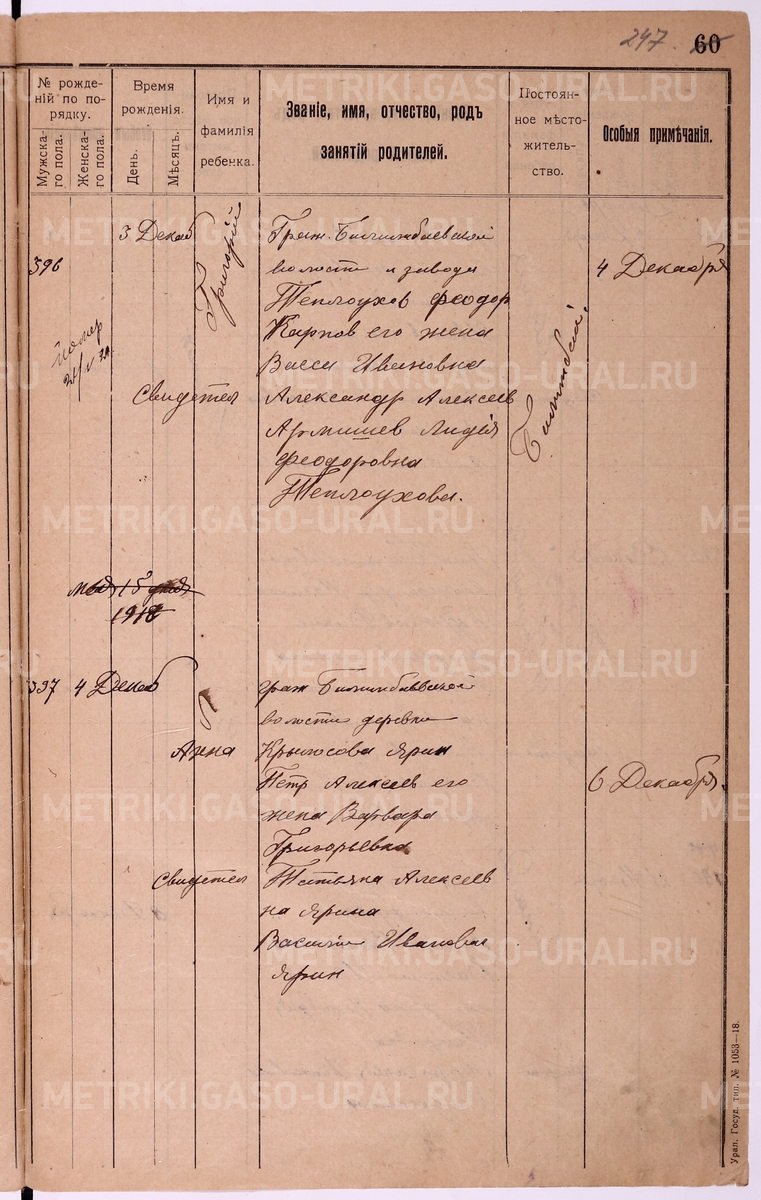 247. 60
№ рожде-
ній по по-
рядку.
Мужска-
го пола.
Женска-
го пола.
Время
рожденія.
День.
Мѣсяцъ.
Имя и
фамилія
ребенка.
Званіе, имя, отчество, родъ
занятій родителей.
Постоян-
ное мѣсто-
житель-
ство.
Особыя примѣчанія.
396
3 Декаб
Григорій
Граж. Билимбаевской
волости и завода
Теплоухов Феодор
Карпов его жена
Васса Ивановна
Билимбай.
4 Декабря
помер
Свидетел
Александр Алексеев
Армишев Лидія
Феодоровна
Теплоухова.
15
1918
337
4 Декаб
Анна
граж Билимбаевской
волости деревни
Крылосова Ярин
Петр Алексеев его
жена Варвара
Григорьевна
6 Декабря
Свидетел
Татьяна Алексеев
на Ярина
Василий Иванович
Ярин
Урал. Госуд. тип. № 1053—18.
METRIKI.GASO-URAL.RU